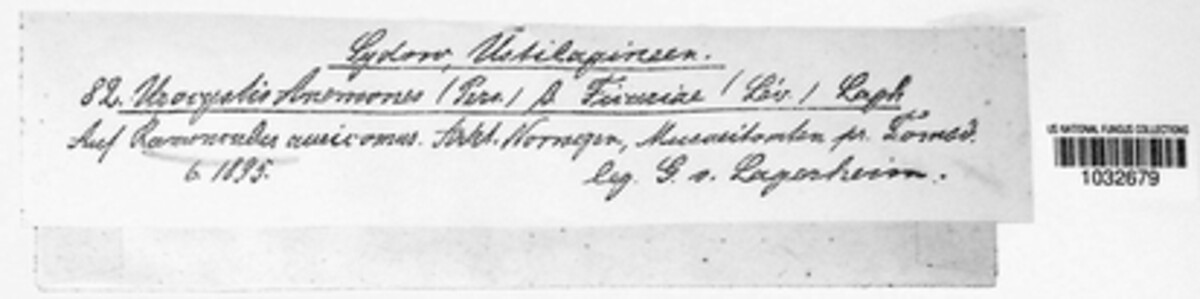 Sydow, Ustilagineen.
82. Urocystis Anemones (Pers.) β. Ficariae (Lév.) Lagh
Auf Ranunculus auricomus. Arkt. Norwegen, pr. Tomsö.
6. 1895. leg. G. v. Lagerheim.
US NATIONAL FUNGUS COLLECTIONS
1032679